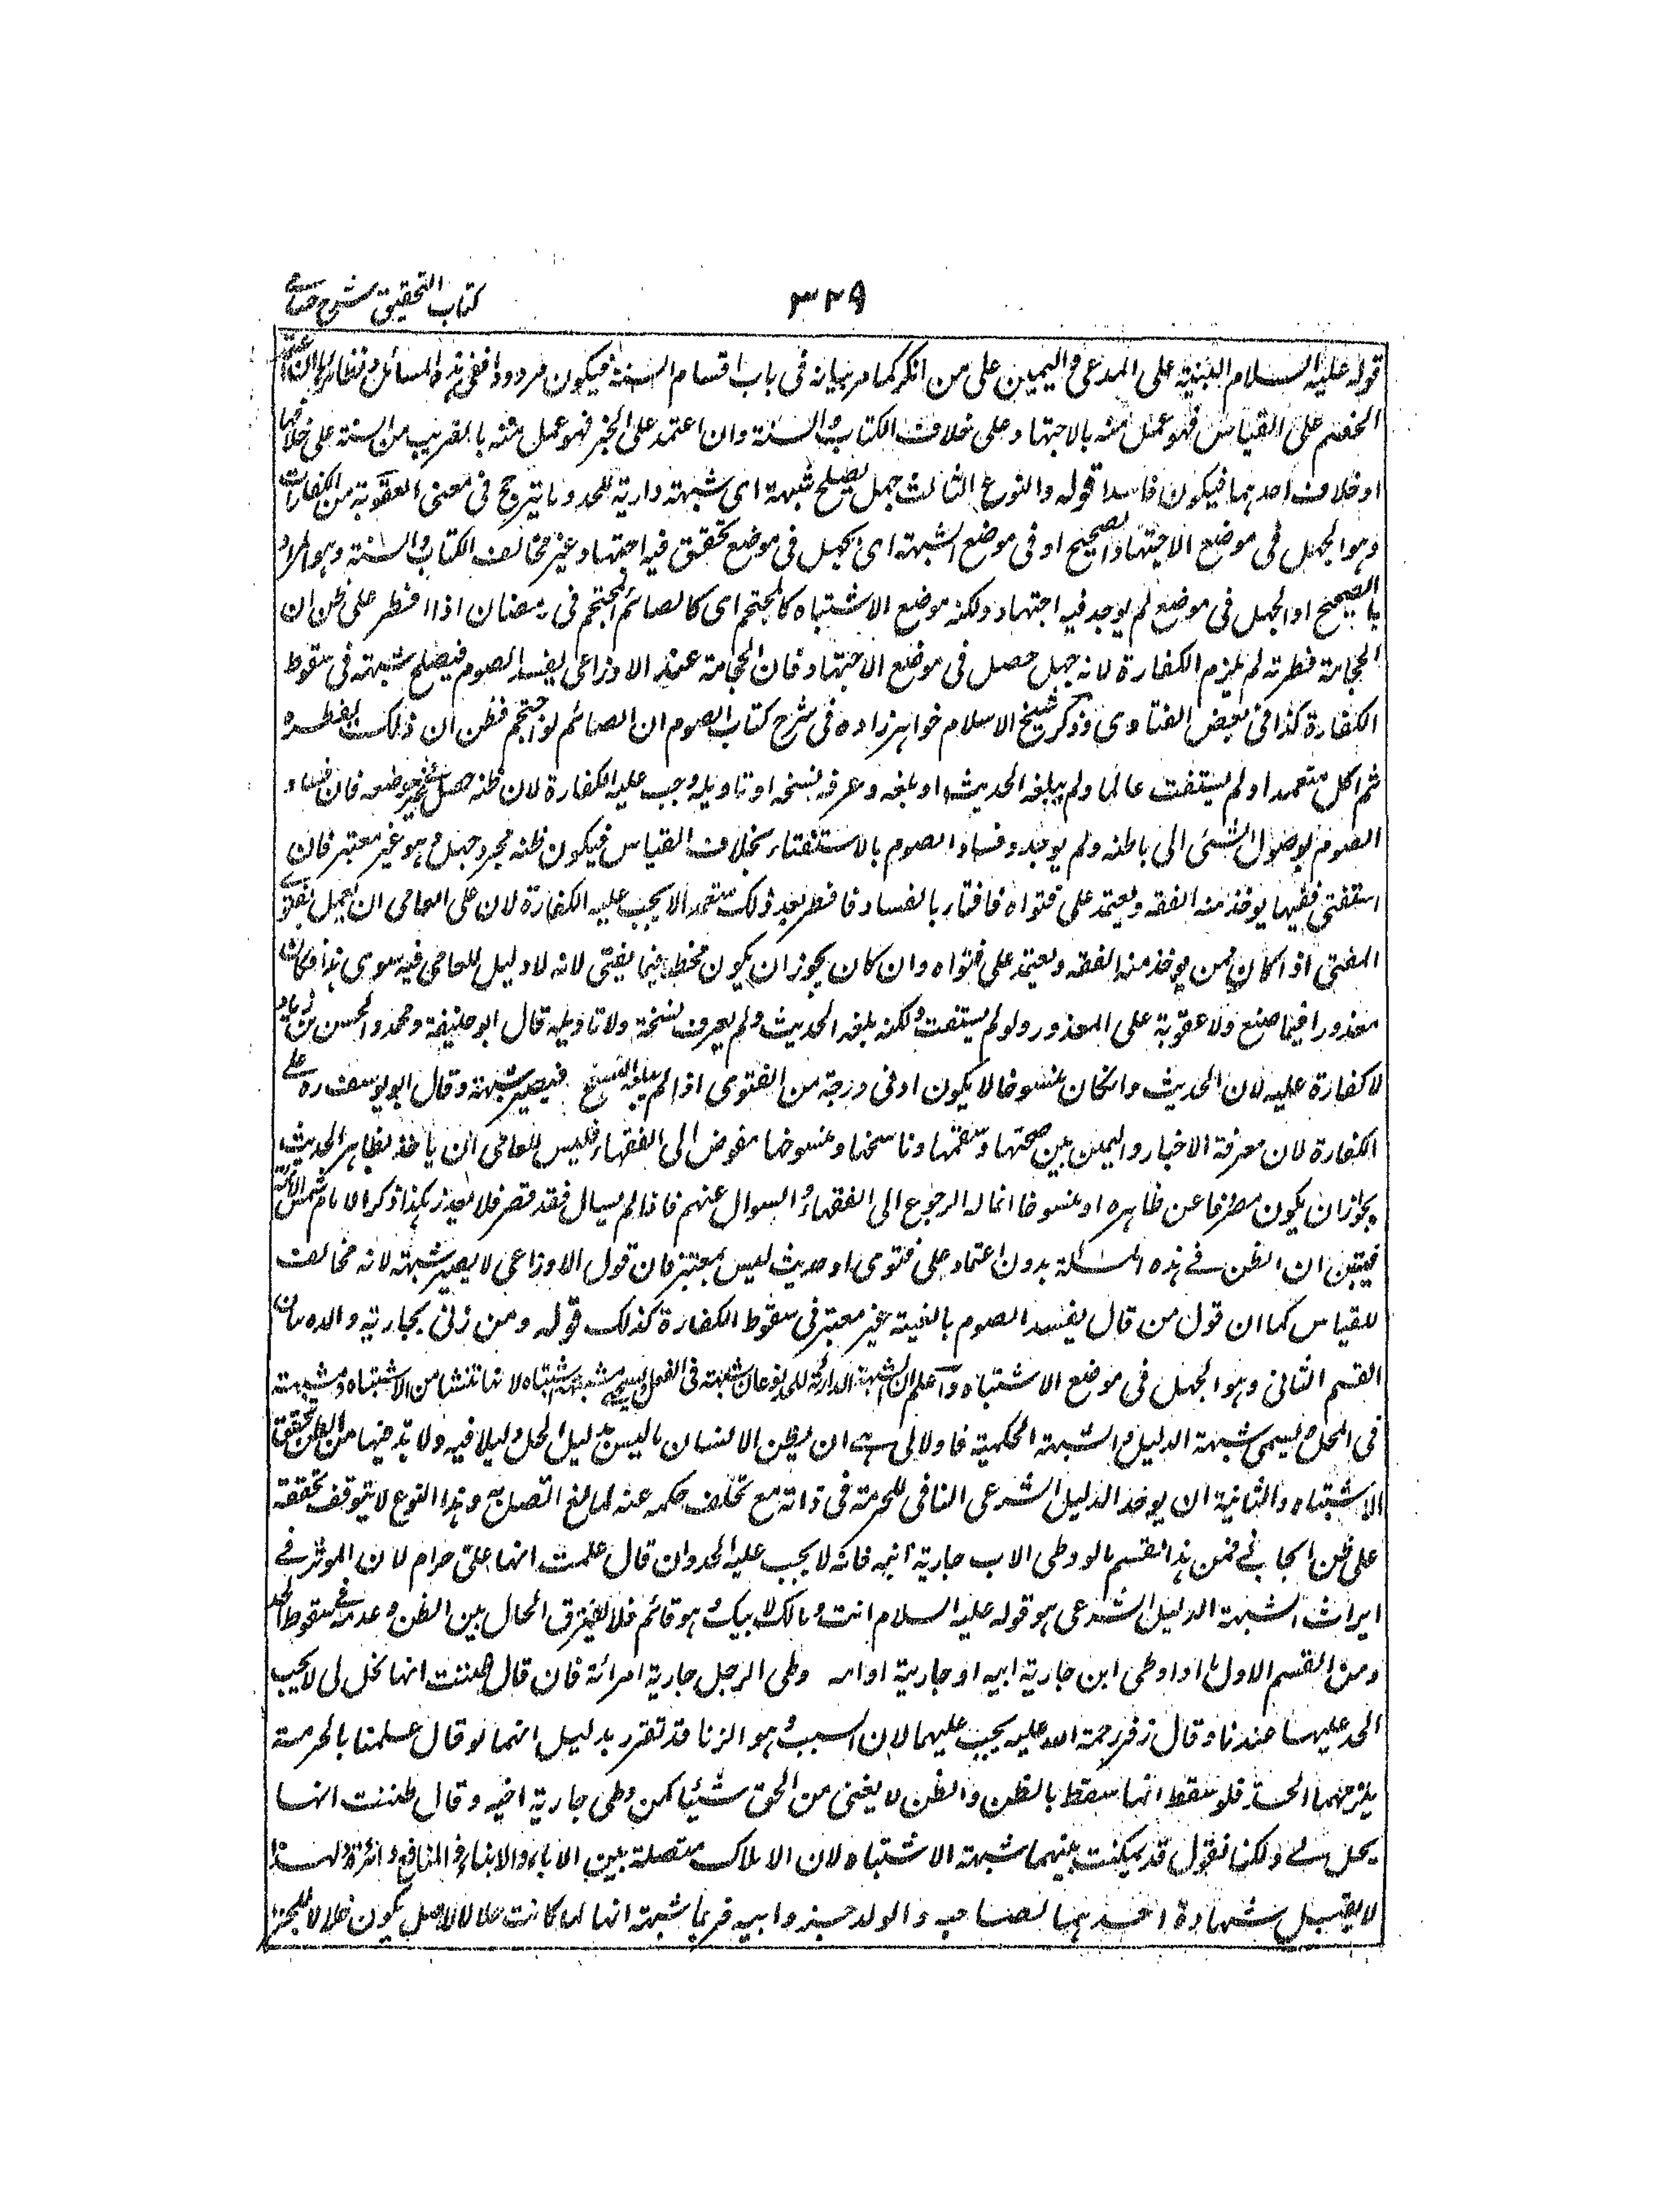 كتاب التحقيق شرح حسامى
٣٢٩
قوله عليه السلام البينة على المدعى و اليمين على من انكر كما مر بيانه فى باب اقسام السنة فيكون مردودا ففى هذه المسائل و نظائرها ان اعتمد
الخصم على القياس فهو عمل منه بالاجتهاد على خلاف الكتاب و السنة وان اعتمد على الخبر فهو عمل منه بالغريب من السنة على خلافهما
او خلاف احدهما فيكون فاسدا قوله والنوع الثالث جهل يصلح شبهة اى شبهة دارية للحد وما يتروج فى معنى العقوبة من الكفارات
وهو الجهل فى موضع الاجتهاد الصحيح او فى موضع الشبهة اى الجهل فى موضع تحقق فيه اجتهاد غير مخالف الكتاب و السنة وهو المراد
بالصحيح او الجهل فى موضع لم يوجد فيه اجتهاد ولكنه موضع الاشتباه كالمحتجم اى كالصائم المحتجم فى رمضان اذا افطر على ظن ان
الحجامة فطرته لم يلزم الكفارة لانه جهل حصل فى موضع الاجتهاد فان الحجامة عند الاوزاعى يفسد الصوم فيصلح شبهة فى سقوط
الكفارة كذا فى بعض الفتاوى و ذكر شيخ الاسلام خواهرزاده فى شرح كتاب الصوم ان الصائم لو احتجم فظن ان ذلك يفطره
ثم اكل متعمدا ولم يستفت عالما ولم يبلغه الحديث او بلغه وعرف نسخه او تاويله وجب عليه الكفارة لان ظنه حصل فى غير موضعه فان فساد
الصوم بوصول الشئ الى باطنه ولم يوجد وفساد الصوم بالاستقاء بخلاف القياس فيكون ظنه مجرد جهل و هو غير معتبر فان
استفتى فقيها يوخذ منه الفقه ويعتمد على فتواه فافتاه بالفساد فافطر بعد ذلك متعمدا لا يجب عليه الكفارة لان على العامى ان يعمل بفتوى
المفتى اذا كان ممن يوخذ منه الفقه ويعتمد على فتواه وان كان يجوز ان يكون مخطئا فيما يفتى لانه لا دليل للعامى فيه سوى هذا فكان
معذورا فيما صنع ولا عقوبة على المعذور ولو لم يستفت و لكنه بلغه الحديث ولم يعرف نسخه ولا تاويله قال ابو حنيفة و محمد والحسن بن زياد
لا كفارة عليه لان الحديث وان كان منسوخا لا يكون ادنى درجة من الفتوى اذا لم يبلغه النسخ فيصير شبهة وقال ابو يوسف ره عليه
الكفارة لان معرفة الاخبار والتميز بين صحتها وسقمها وناسخها ومنسوخها مفوض الى الفقهاء فليس للعامى ان ياخذ بظاهر الحديث
يجوز ان يكون مصرفا عن ظاهره او منسوخا انما له الرجوع الى الفقهاء و السوال عنهم فاذا لم يسال فقد قصر فلا يعذر هكذا ذكر الامام شمس الائمة
فتبين ان الظن فى هذه المسئلة بدون اعتماد على فتوى او حديث ليس بمعتبر فان قول الاوزاعى لا يصير شبهة لانه مخالف
للقياس كما ان قول من قال يفسد الصوم بالغيبة غير معتبر فى سقوط الكفارة كذلك قوله ومن زنى بجارية والده بيان
القسم الثانى وهو الجهل فى موضع الاشتباه واعلم ان الشبهة الدارئة للحد نوعان شبهة فى الفعل و يسمى شبهة اشتباه لانها تنشا من الاشتباه و شبهة
فى المحل و يسمى شبهة الدليل و الشبهة الحكمية فالاولى هى ان يظن الانسان ما ليس بدليل الحل دليلا فيه ولا بد فيها من الظن ليتحقق
الاشتباه والثانية ان يوجد الدليل الشرعى النافى للحرمة فى ذاته مع تخلف حكمه عنه لمانع اتصل به وهذا النوع لا يتوقف تحققه
على ظن الجانى فمن هذا القسم ما لو وطى الاب جارية ابنه فانه لا يجب عليه الحد وان قال علمت انها على حرام لان الموثر فى
ايراث الشبهة الدليل الشرعى هو قوله عليه السلام انت و مالك لابيك و هو قائم فلا يفترق الحال بين الظن و عدمه فى سقوط الحد
ومن القسم الاول ما اذا وطى ابن جارية ابيه او جارية او امه وطى الرجل جارية امراته فان قال ظننت انها تحل لى لا يجب
الحد عليهما عندنا وقال زفر رحمة الله عليه يجب عليهما لان السبب و هو الزنا قد تقرر بدليل انهما لو قال علمنا بالحرمة
يلزمهما الحد فلو سقط انما سقط بالظن والظن لا يغنى من الحق شيئا كمن وطى جارية اخيه وقال ظننت انها
يحل لى ولكنا نقول قد تمكنت بينهما شبهة الاشتباه لان الاملاك متصلة بين الاباء والابناء و المنافع دائرة ولهذا
لا يقبل شهادة احدهما لصاحبه والولد جزء ابيه فربما شبهة انها لما كانت حلالا للاصل يكون حلالا للجزء